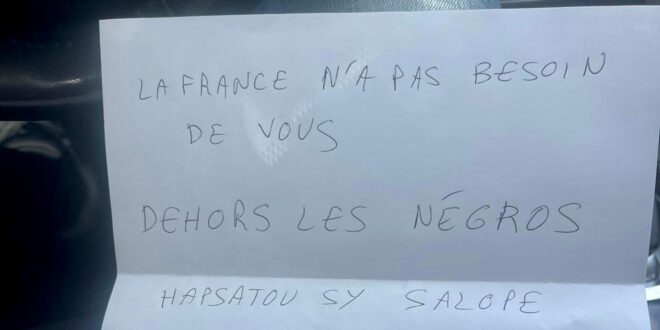 LA FRANCE N'A PAS BESOIN
DE VOUS
DEHORS LES NÉGROS
HAPSATOU SY SALOPE